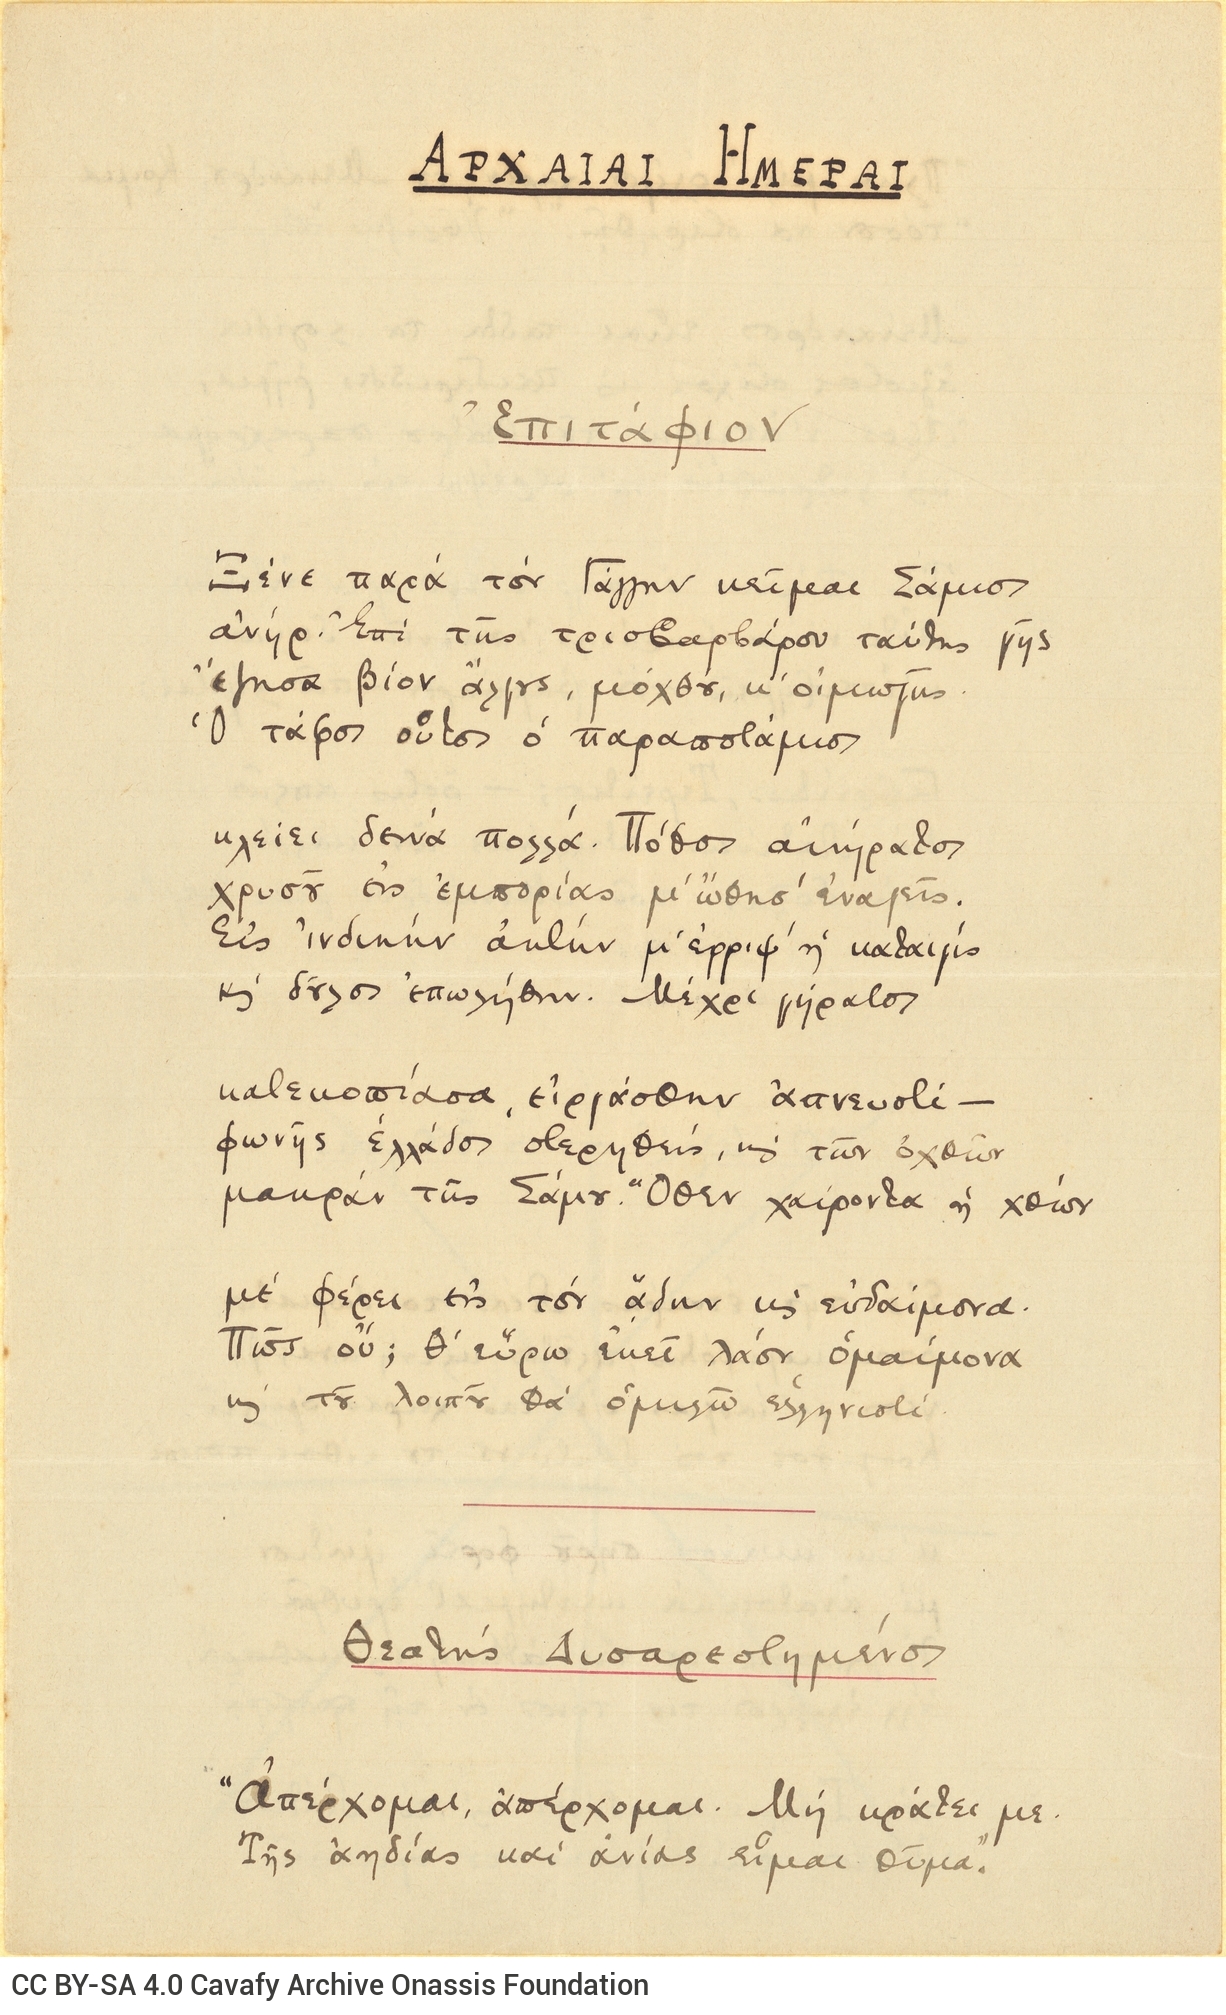 ΑΡΧΑΙΑΙ ΗΜΕΡΑΙ
Ἐπιτάφιον
Ξένε παρά τόν Γάγγην κεῖμαι Σάμιος
ἀνήρ. Ἐπί τῆς τρισβαρβάρου ταύτης γῆς
ἔζησα βίον ἄλγους, μόχθου, κ' οἰμωγῆς.
Ὁ τάφος οὗτος ὁ παραποτάμιος
κλείει δεινά πολλά. Πόθος ἀκήρατος
χρυσοῦ εἰς ἐμπορίας μ' ὤθησ' ἐναγεῖς.
Εἰς ἰνδικήν ἀκτήν μ' ἔρριψ' ἡ καταιγίς
κ̀ δοῦλος ἐπωλήθην. Μέχρι γήρατος
κατεκοπίασα, εἰργάσθην ἀπνευστί —
φωνῆς ἑλλάδος στερηθείς, κ̀ τῶν ὀχθῶν
μακράν τῆς Σάμου. Ὅθεν χαίροντα ἡ χθών
μέ φέρει εἰς τόν ᾅδην κ̀ εὐδαίμονα.
Πῶς οὔ; θ' εὕρω ἐκεῖ λαόν ὁμαίμονα
κ̀ τοῦ λοιποῦ θά ὁμιλῶ ἑλληνιστί.
Θεατής Δυσαρεστημένος
"Ἀπέρχομαι, ἀπέρχομαι. Μή κράτει με.
Τῆς ἀηδίας καί ἀνίας εἶμαι θῦμα."
CC BY-SA 4.0 Cavafy Archive Onassis Foundation